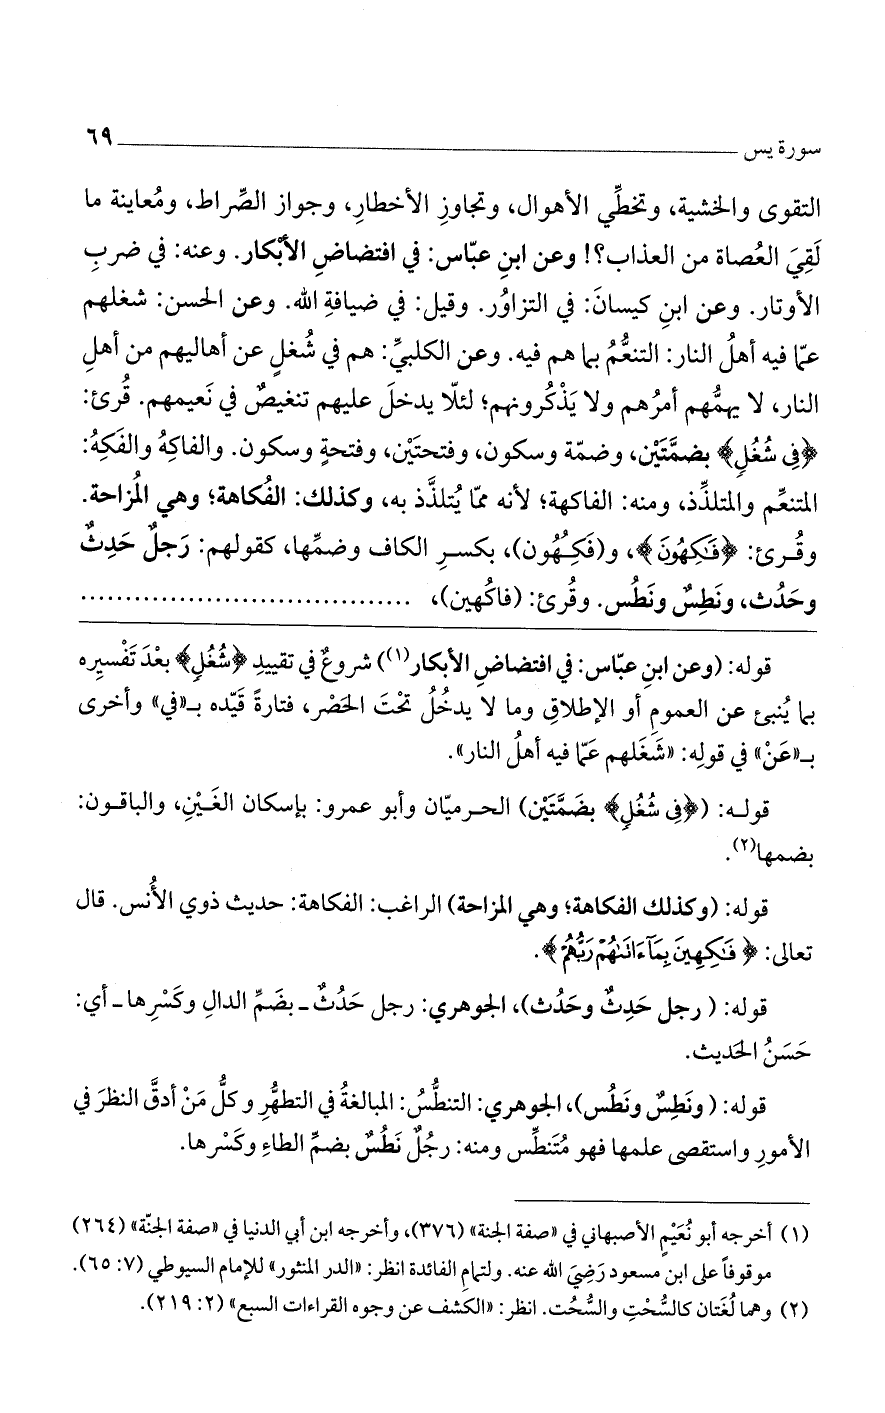 سورة يس ٦٩
التقوى والخشية، وتخطِّي الأهوال، وتجاوزِ الأخطارِ، وجواز الصِّراط، ومُعاينة ما
لَقِيَ العُصاة من العذاب؟! وعن ابنِ عبّاس: في افتضاضِ الأبْكار. وعنه: في ضربِ
الأوتار. وعن ابنِ كيسانَ: في التزاوُر. وقيل: في ضيافةِ الله. وعن الحسن: شغلهم
عمّا فيه أهلُ النار: التنعُّمُ بما هم فيه. وعن الكلبيِّ: هم في شُغلٍ عن أهاليهم من أهلِ
النار، لا يهمُّهم أمرُهم ولا يَذْكُرونهم؛ لئلّا يدخلَ عليهم تنغيصٌ في نَعيمهم. قُرئ:
﴿فِى شُغُلٍ﴾ بضمَّتَيْن، وضمّة وسكون، وفتحتَيْن، وفتحةٍ وسكون. والفاكِهُ والفَكِهُ:
المتنعِّم والمتلذِّذ، ومنه: الفاكهة؛ لأنه ممّا يُتلذَّذ به، وكذلك: الفُكاهة؛ وهي المُزاحة.
وقُرئ: ﴿فَٰكِهُونَ﴾، و(فَكِهُون)، بكسرِ الكاف وضمِّها، كقولهم: رَجلٌ حَدِثٌ
وحَدُث، ونَطِسٌ ونَطُس. وقُرئ: (فاكُهين)، ...................................
قوله: (وعن ابنِ عبّاس: في افتضاضِ الأبكار(١)) شروعٌ في تقييدِ ﴿شُغُلٍ﴾ بعْدَ تَفْسيرِه
بما يُنبئ عن العمومِ أو الإطلاقِ وما لا يدخُلُ تحْتَ الحَصْر، فتارةً قَيّده بـ«في» وأخرى
بـ«عَنْ» في قولِه: «شَغَلهم عَمّا فيه أهلُ النار».
قولـه: (﴿فِى شُغُلٍ﴾ بضَمَّتَيْن) الحرميّان وأبو عمرو: بإسكان الغَيْنِ، والباقون:
بضمها(٢).
قوله: (وكذلك الفكاهة؛ وهي المزاحة) الراغب: الفكاهة: حديث ذوي الأُنس. قال
تعالى: ﴿فَٰكِهِينَ بِمَآ ءَاتَىٰهُمْ رَبُّهُمْ﴾.
قوله: (رجل حَدِثٌ وحَدُث)، الجوهري: رجل حَدُثٌ ـ بضَمِّ الدالِ وكَسْرِها ـ أي:
حَسَنُ الحَديث.
قوله: (ونَطِسٌ ونَطُس)، الجوهري: التنطُّسُ: المبالغةُ في التطهُّرِ وكلُّ مَنْ أدقَّ النظرَ في
الأمورِ واستقصى علمها فهو مُتَنطِّس ومنه: رجُلٌ نَطُسٌ بضمِّ الطاءِ وكَسْرها.
(١) أخرجه أبو نُعَيْمٍ الأصبهاني في «صفة الجنة» (٣٧٦)، وأخرجه ابن أبي الدنيا في «صفة الجنّة» (٢٦٤)
موقوفاً على ابن مسعود رَضِيَ الله عنه. ولتمامِ الفائدة انظر: «الدر المنثور» للإمام السيوطي (٧: ٦٥).
(٢) وهما لُغَتان كالسُّحْتِ والسُّحُت. انظر: «الكشف عن وجوه القراءات السبع» (٢: ٢١٩).